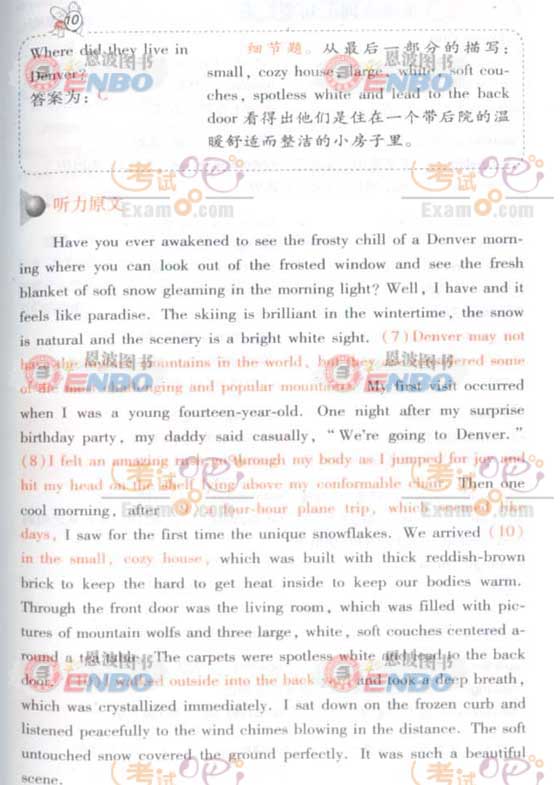 10
Where did they live in
Denver?
答案为：C
细节题。从最后一部分的描写：
small, cozy house, large, white, soft cou-
ches, spotless white and lead to the back
door 看得出他们是住在一个带后院的温
暖舒适而整洁的小房子里。
听力原文
Have you ever awakened to see the frosty chill of a Denver morn-
ing where you can look out of the frosted window and see the fresh
blanket of soft snow gleaming in the morning light? Well, I have and it
feels like paradise. The skiing is brilliant in the wintertime, the snow
is natural and the scenery is a bright white sight. (7) Denver may not
mountains in the world, but they some
of the most challenging and popular mountains. My first visit occurred
when I was a young fourteen-year-old. One night after my surprise
birthday party, my daddy said casually, "We're going to Denver."
(8) I felt an amazing rush go through my body as I jumped for joy and
hit my head on the shelf king above my conformable chair. Then one
cool morning, after (9) a four-hour plane trip, which seemed like
days, I saw for the first time the unique snowflakes. We arrived (10)
in the small, cozy house, which was built with thick reddish-brown
brick to keep the hard to get heat inside to keep our bodies warm.
Through the front door was the living room, which was filled with pic-
tures of mountain wolfs and three large, white, soft couches centered a-
round a table. The carpets were spotless white and lead to the back
door. I walked outside into the back and took a deep breath,
which was crystallized immediately. I sat down on the frozen curb and
listened peacefully to the wind chimes blowing in the distance. The soft
untouched snow covered the ground perfectly. It was such a beautiful
scene.
恩波图书
ENBO
考试
Exam8.com